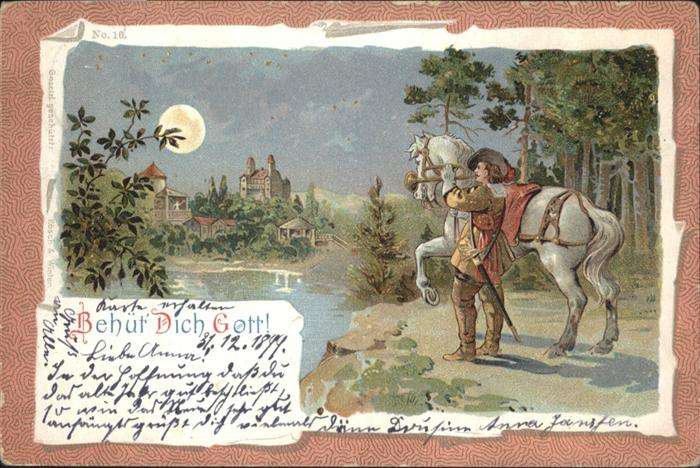 No. 16.
Gesetzl. geschützt.
Rosch & Winter,
Karte erhalten
Behüt Dich Gott!
Liebe Anna! 31.12.1899.
In der Hoffnung daß du
das alte Jahr gut beschließt,
so wie das Neue sehr gut
anfängst grüßt dich vielmals deine Cousine Anna Janssen.